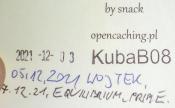 by snack
opencaching.pl
2021 -12- 03 KubaB08
05.12.2021 WOJTEK,
7.12.21, EQUILIBRIUM, PRIME.